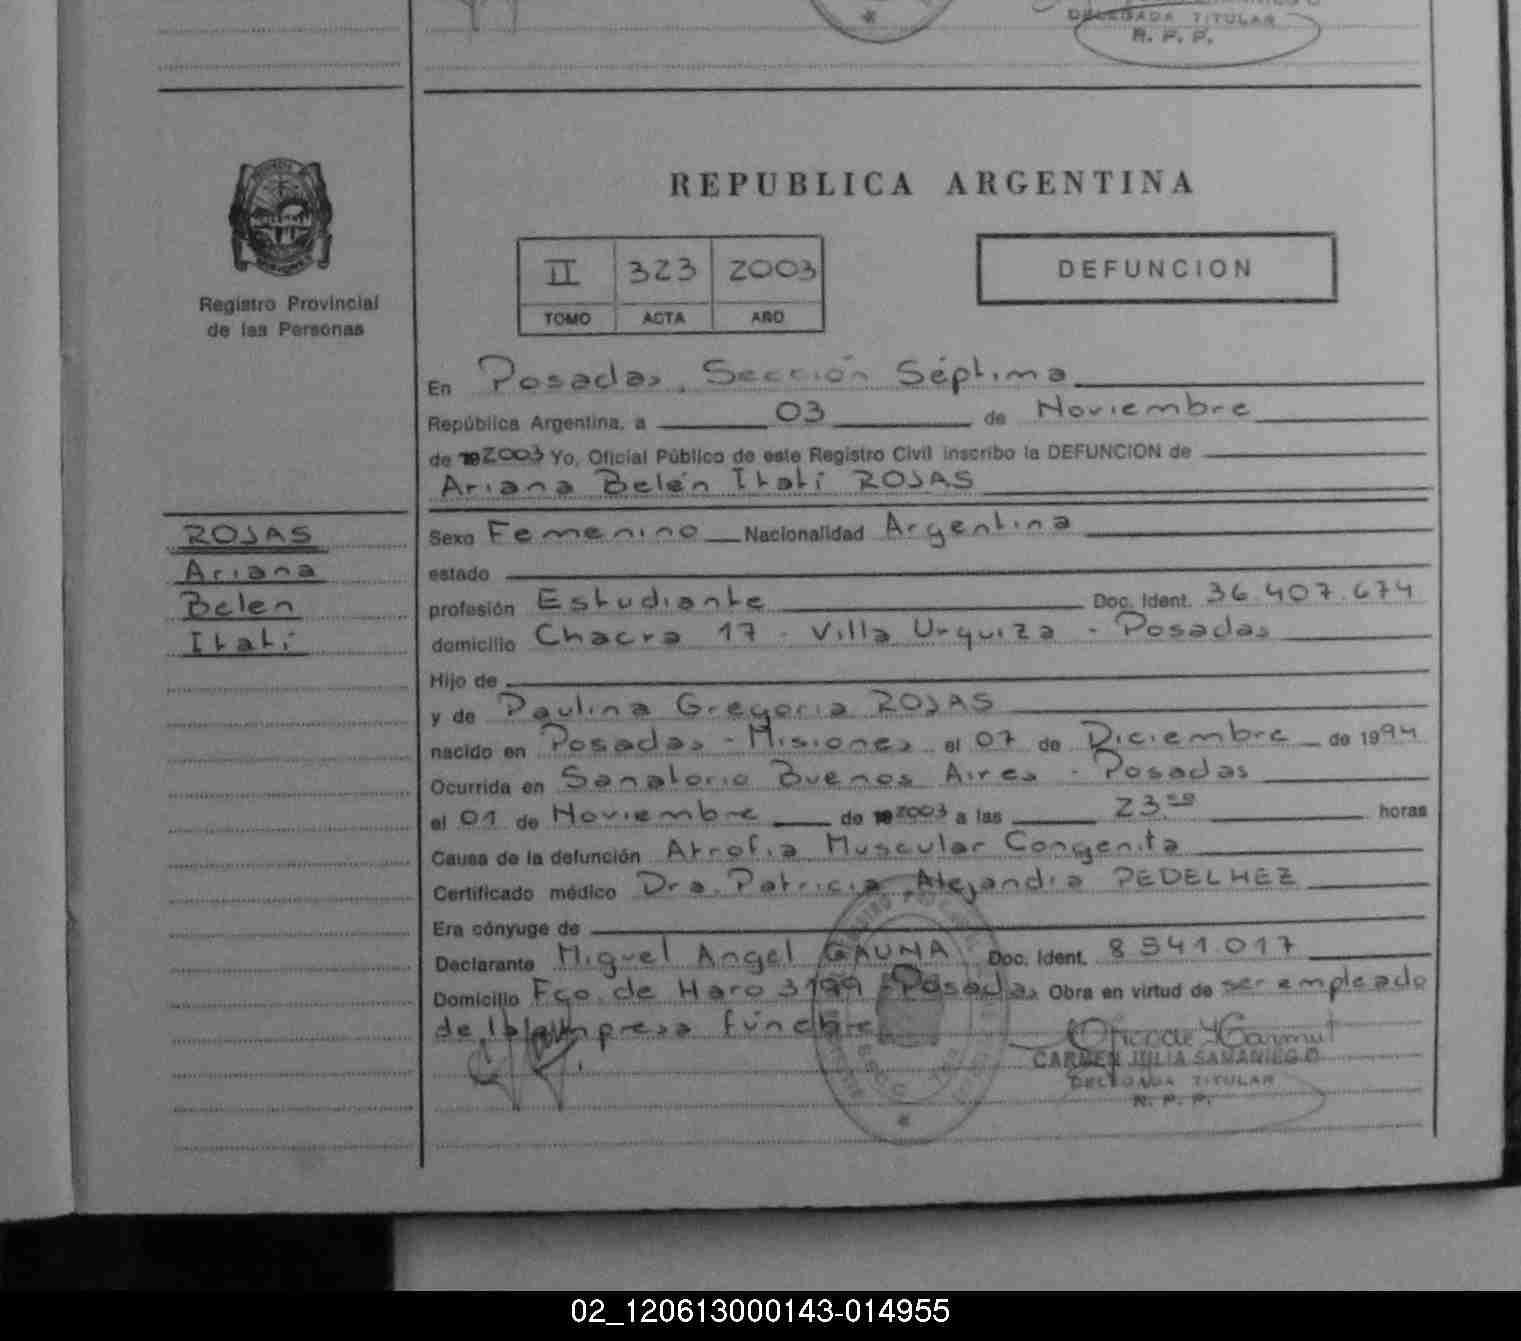 DELEGADA TITULAR
R. P. P.
REPUBLICA ARGENTINA
II 323 2003
TOMO ACTA AÑO
DEFUNCION
Registro Provincial
de las Personas
En Posadas, Sección Séptima
República Argentina, a 03 de Noviembre
de 192003 Yo, Oficial Público de este Registro Civil inscribo la DEFUNCION de
Ariana Belén Itatí ROJAS
ROJAS
Ariana
Belen
Itatí
Sexo Femenino Nacionalidad Argentina
estado
profesión Estudiante Doc. Ident. 36.407.674
domicilio Chacra 17 - Villa Urquiza - Posadas
Hijo de
y de Paulina Gregoria ROJAS
nacido en Posadas - Misiones el 07 de Diciembre de 1994
Ocurrida en Sanatorio Buenos Aires - Posadas
el 01 de Noviembre de 192003 a las 23.50 horas
Causa de la defunción Atrofia Muscular Congenita
Certificado médico Dra. Patricia Alejandra PEDELHEZ
Era cónyuge de
Declarante Miguel Angel GAUNA Doc. Ident. 8541.017
Domicilio Fco. de Haro 3199 - Posadas Obra en virtud de ser empleado
de la empresa fúnebre
CARMEN JULIA SAMANIEGO
DELEGADA TITULAR
R. P. P.
02_120613000143-014955